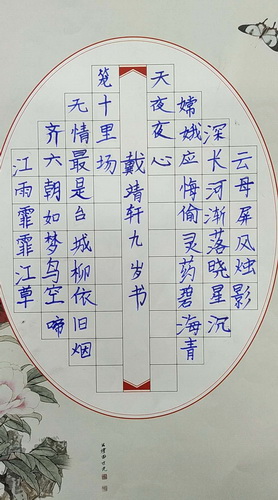 云母屏风烛影
深长河渐落晓星沉
嫦娥应悔偷灵药碧海青
天夜夜心
江雨霏霏江草
齐六朝如梦鸟空啼
无情最是台城柳依旧烟
笼十里场
戴靖轩九岁书